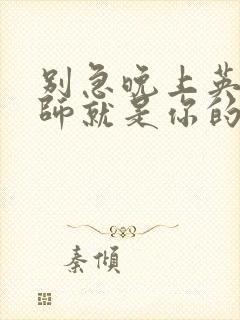 别急晚上英
师就是你的
秦倾